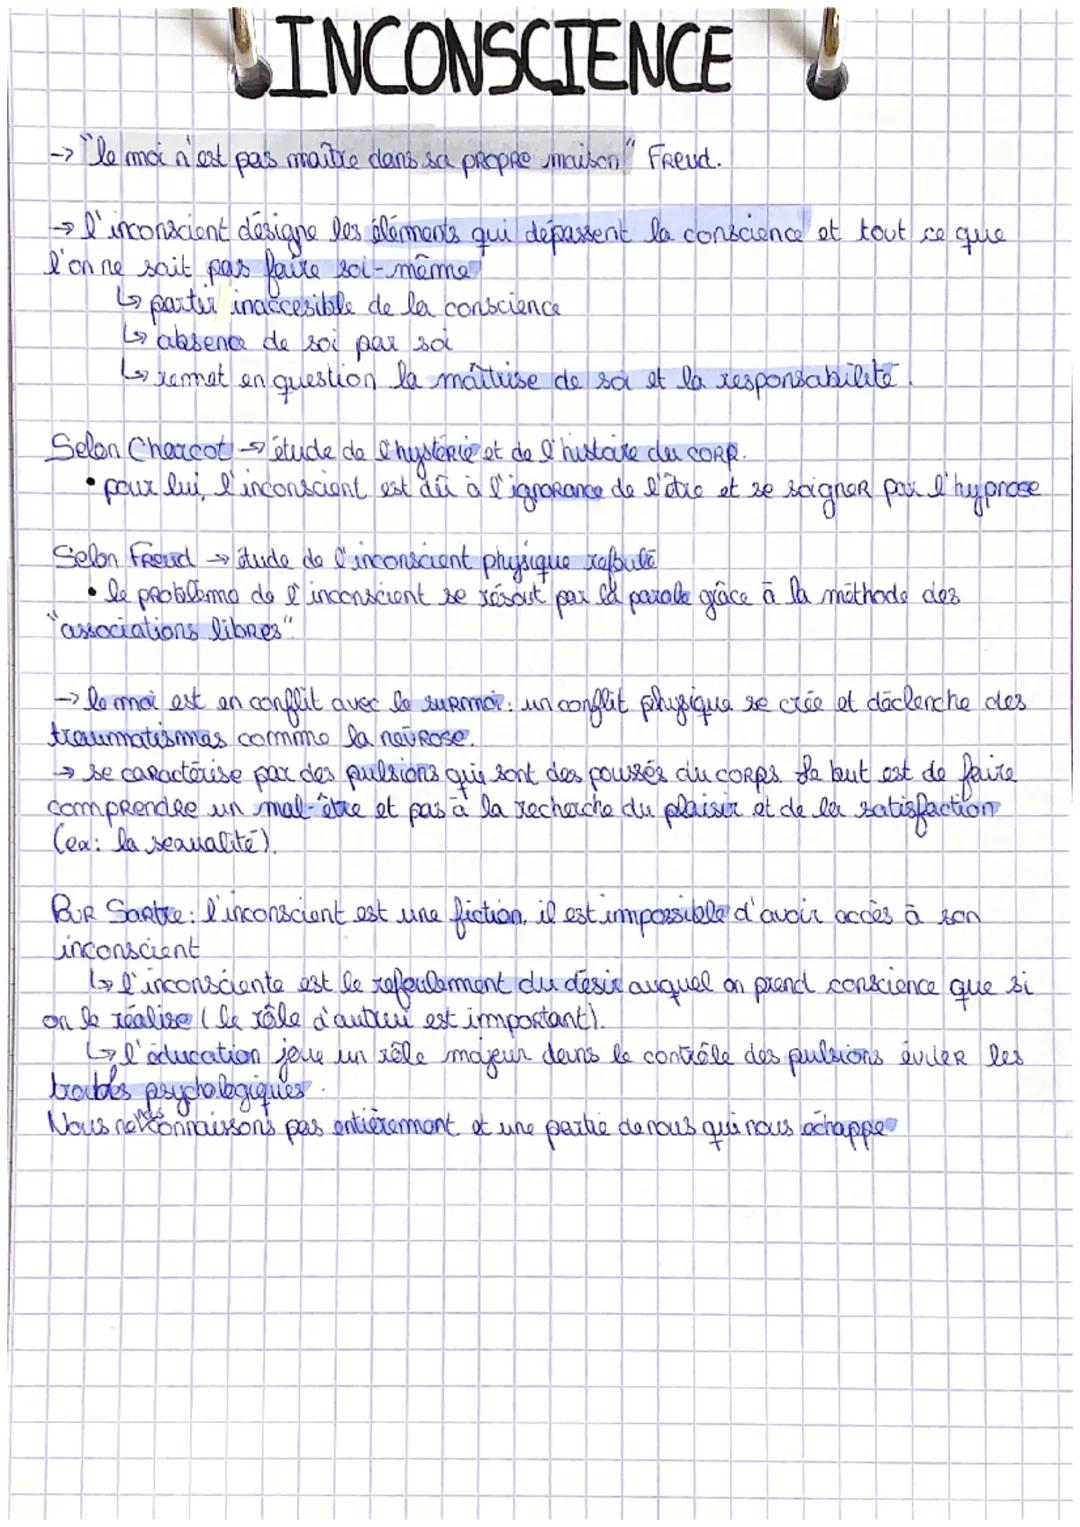 INCONSCIENCE
-> "le moi n'est pas maître dans sa propre maison" Freud.
-> l'inconscient désigne les éléments qui dépassent la conscience et tout ce que
l'on ne sait pas faire soi-même
↳ partie inaccesible de la conscience
↳ absence de soi par soi
↳ remet en question la maîtrise de soi et la responsabilité.
Selon Charcot -> étude de l'hystérie et de l'histoire du corp.
• pour lui, l'inconscient est dû à l'ignorance de l'être et se soigner par l'hypnose
Selon Freud -> étude de l'inconscient physique refoulé
• le problème de l'inconscient se résout par la parole grâce à la méthode des
"associations libres".
-> le moi est en conflit avec le surmoi: un conflit physique se crée et déclenche des
traumatismes comme la névrose.
-> se caractérise par des pulsions qui sont des poussés du corps. Le but est de faire
comprendre un mal-être et pas à la recherche du plaisir et de la satisfaction
(ex: la sexualité).
Pour Sartre: l'inconscient est une fiction, il est impossible d'avoir accès à son
inconscient
↳ l'insconsciente est le refoulement du désir auquel on prend conscience que si
on le réalise (le rôle d'autrui est important).
↳ l'éducation joue un rôle majeur dans le contrôle des pulsions éviter les
troubles psychologiques.
Nous ne nous connaissons pas entièrement et une partie de nous qui nous échappe